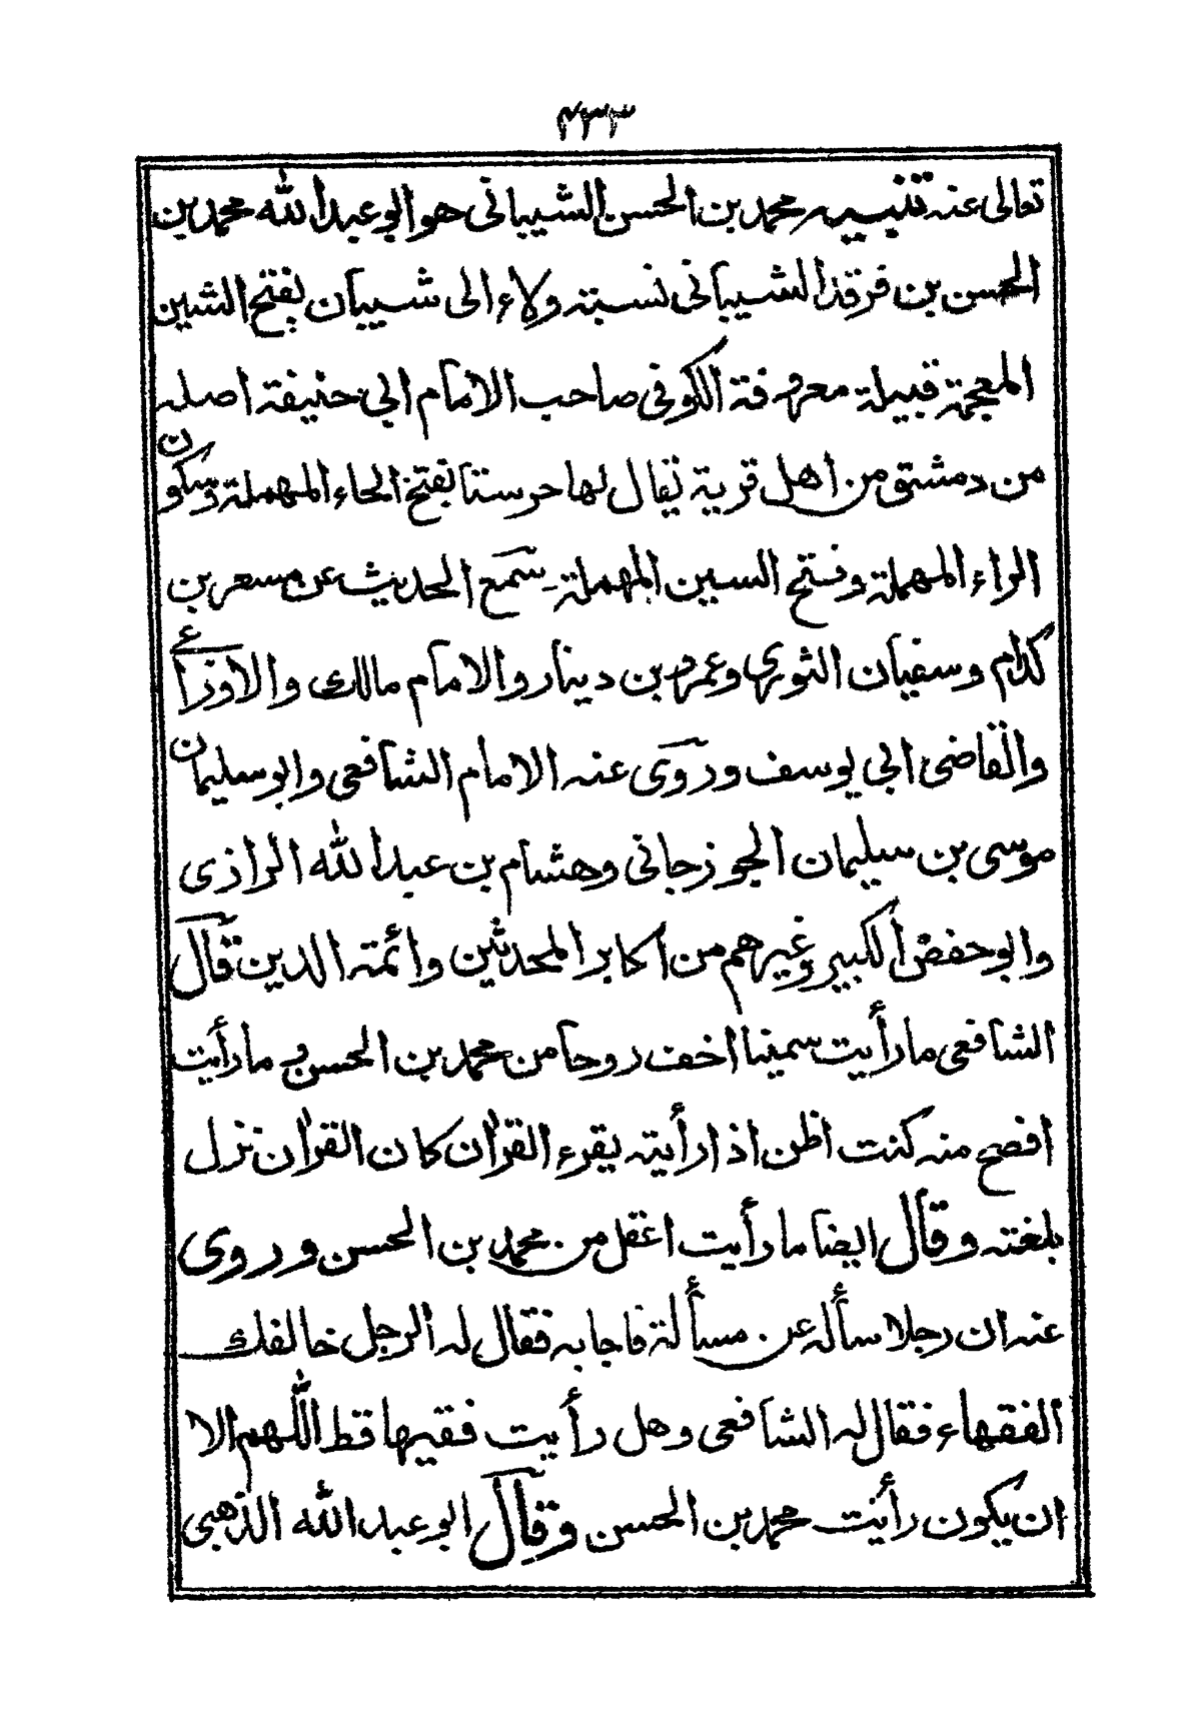 ۴۳۳
تعالى عنه تنبيه محمد بن الحسن الشيبانى هو ابو عبد الله محمد بن
الحسن بن فرقد الشيبانى نسبته ولاء الى شيبان بفتح الشين
المعجمة قبيلة معروفة الكوفى صاحب الامام ابي حنيفة اصله
من دمشق من اهل قرية يقال لها حرستا بفتح الحاء المهملة وسكون
الراء المهملة وفتح السين المهملة سمع الحديث عن مسعر بن
كدام وسفيان الثوري وعمرو بن دينار والامام مالك والاوزاعي
والقاضى ابي يوسف وروى عنه الامام الشافعى وابو سليمان
موسى بن سليمان الجوزجانى وهشام بن عبد الله الرازى
وابو حفص الكبير وغيرهم من اكابر المحدثين وائمته الدين قال
الشافعى ما رأيت سمينا اخف روحا من محمد بن الحسن و ما رأيت
افصح منه كنت اظن اذا رأيته يقرء القرأن كان القرأن نزل
بلغته وقال ايضا ما رأيت اعقل من محمد بن الحسن وروى
عنه ان رجلا سأله عن مسألة فاجابه فقال له الرجل خالفك
الفقهاء فقال له الشافعى وهل رأيت فقيها قط اللهم الا
ان يكون رأيت محمد بن الحسن وقال ابو عبد الله الذهبى